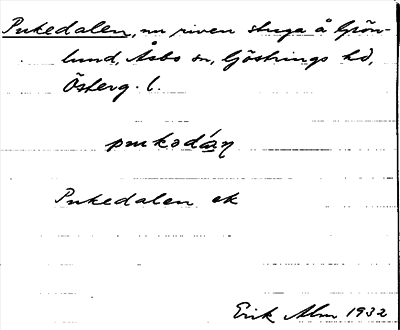 Pukedalen, nu riven stuga å Grön-
lund, Åsbo sn, Göstrings hd,
Österg. l.
Pukedalen ek
Erik Alm 1932